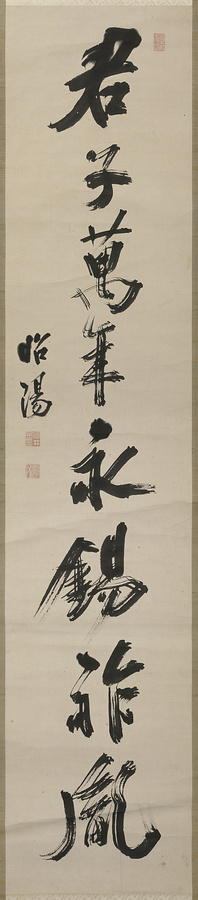 君子萬年永錫祚胤
昭陽